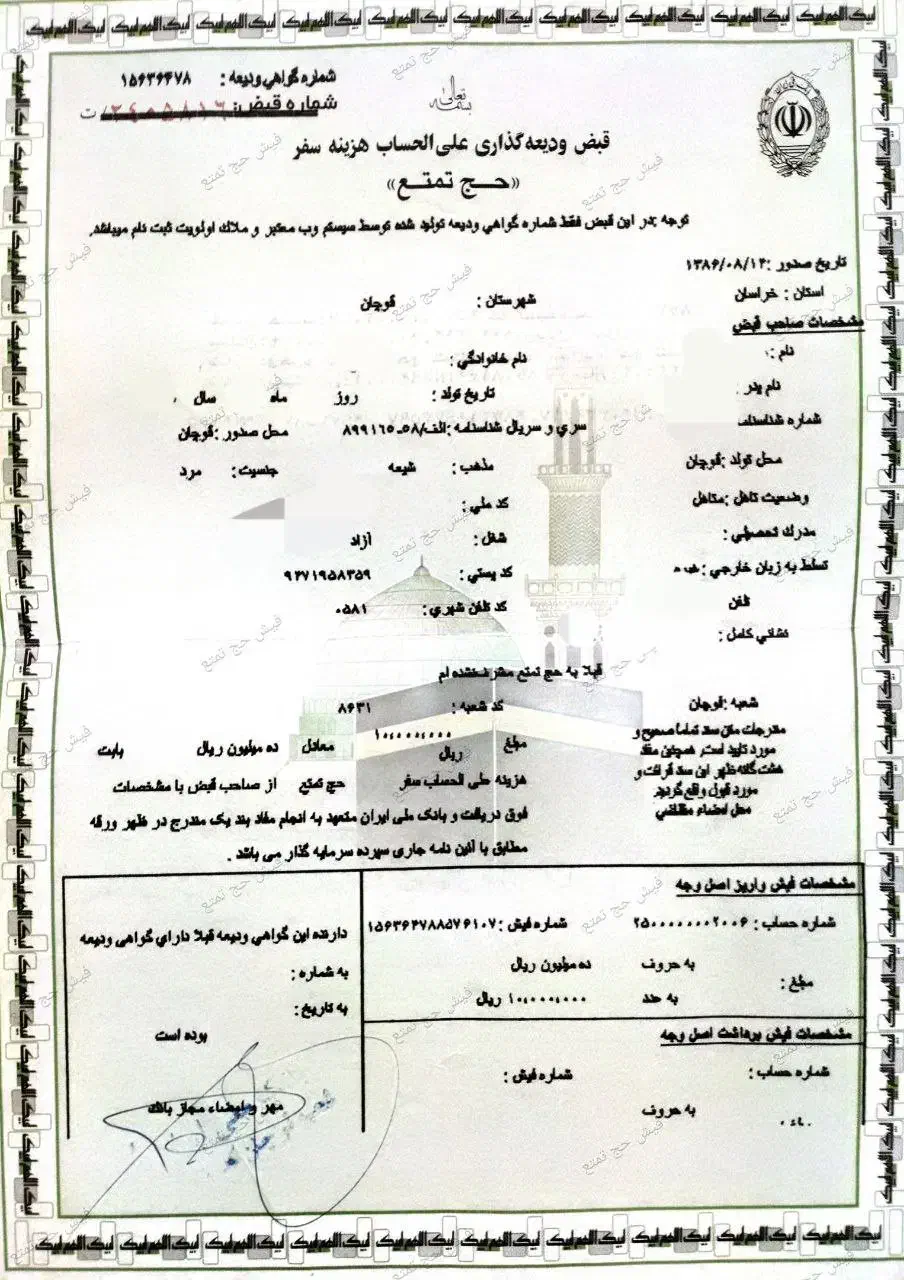 شماره گواهي وديعه : ۱۵۶۳۶۴۷۸
شماره قبض: ۲۴۰۵۸۱۶ ت
بسمه تعالی
قبض ودیعه گذاری علی الحساب هزینه سفر
«حـــج تمتـــع»
توجه :در اين قبض فقط شماره گواهي وديعه توليد شده توسط سيستم وب معتبر و ملاك اولويت ثبت نام ميباشد.
تاريخ صدور :۱۳۸۶/۰۸/۱۴
استان : خراسان شهرستان : قوچان
مشخصات صاحب قبض
نام : نام خانوادگي :
نام پدر : تاريخ تولد : روز ماه سال
شماره شناسنامه سري و سريال شناسنامه :الف/۵۸ـ۸۹۹۱۶۵ محل صدور :قوچان
محل تولد :قوچان مذهب : شيعه جنسيت : مرد
وضعيت تاهل :متاهل كد ملي :
مدرك تحصيلي : شغل : آزاد
تسلط به زبان خارجي : كد پستي : ۹۴۷۱۹۵۸۳۵۹
تلفن كد تلفن شهري : ۰۵۸۱
نشاني كامل :
قبلا به حج تمتع مشرف نشده ام
شعبه :قوچان كد شعبه : ۸۶۳۱
مندرجات متن سند تماما صحيح و
مورد تاييد است. همچنين مفاد
هشت گانه ظهر اين سند قرائت و
مورد قبول واقع گرديد
محل امضاء متقاضي
مبلغ ۱۰،۰۰۰،۰۰۰ ریال معادل ده میلیون ریال بابت
هزینه علی الحساب سفر حج تمتع از صاحب قبض با مشخصات
فوق دریافت و بانک ملی ایران متعهد به انجام مفاد بند یک مندرج در ظهر ورقه
مطابق با آئین نامه جاری سپرده سرمایه گذار می باشد .
مشخصات فیش واریز اصل وجه
شماره حساب : ۲۵۰۰۰۰۰۰۰۲۰۰۶ شماره فیش :۱۵۶۳۶۴۷۸۸۵۷۶۱۰۷
مبلغ : به حروف ده میلیون ریال
به عدد ۱۰،۰۰۰،۰۰۰ ریال
مشخصات فیش برداشت اصل وجه
شماره حساب : شماره فیش :
به حروف
دارنده این گواهی ودیعه قبلا دارای گواهی ودیعه
به شماره :
به تاریخ :
بوده است
مهر و امضاء مجاز بانک
فیش حج تمتع